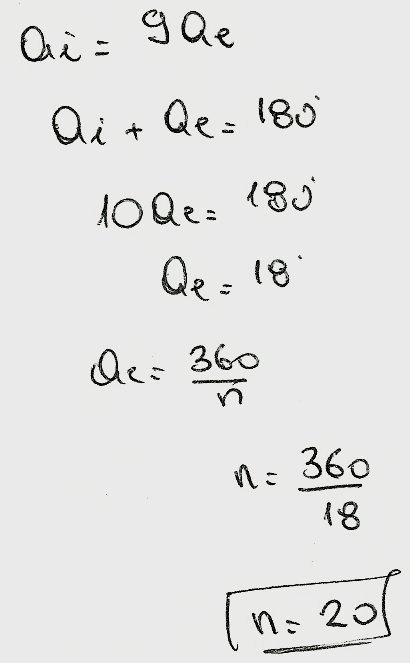 ai = 9ae
ai + ae = 180°
10ae = 180°
ae = 18°
ae = 360/n
n = 360/18
n = 20